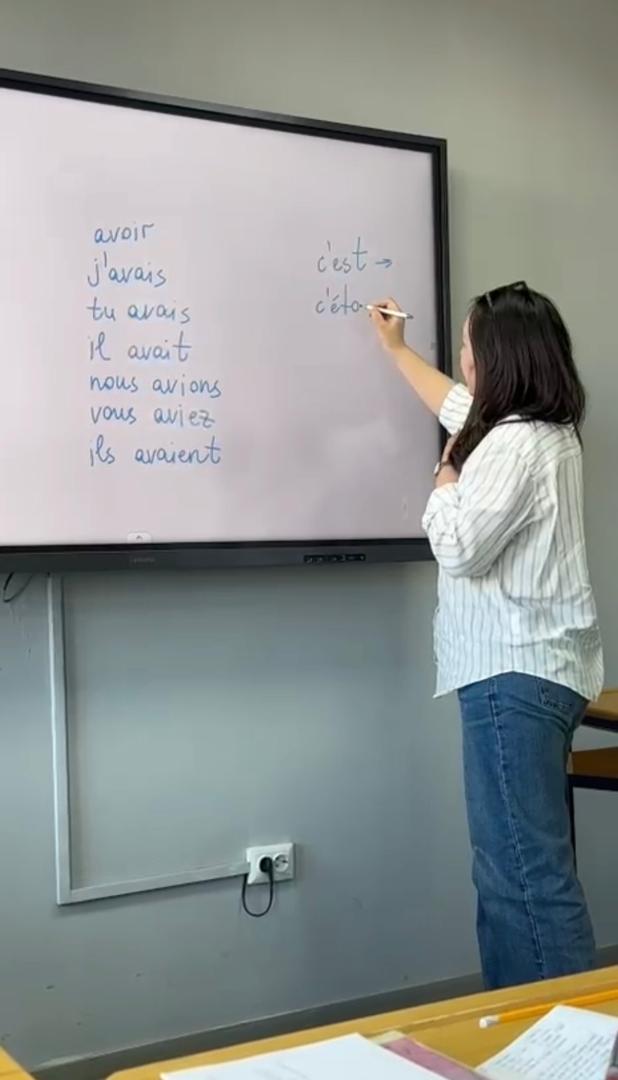 avoir
j'avais
tu avais
il avait
nous avions
vous aviez
ils avaient
c'est →
c'éta